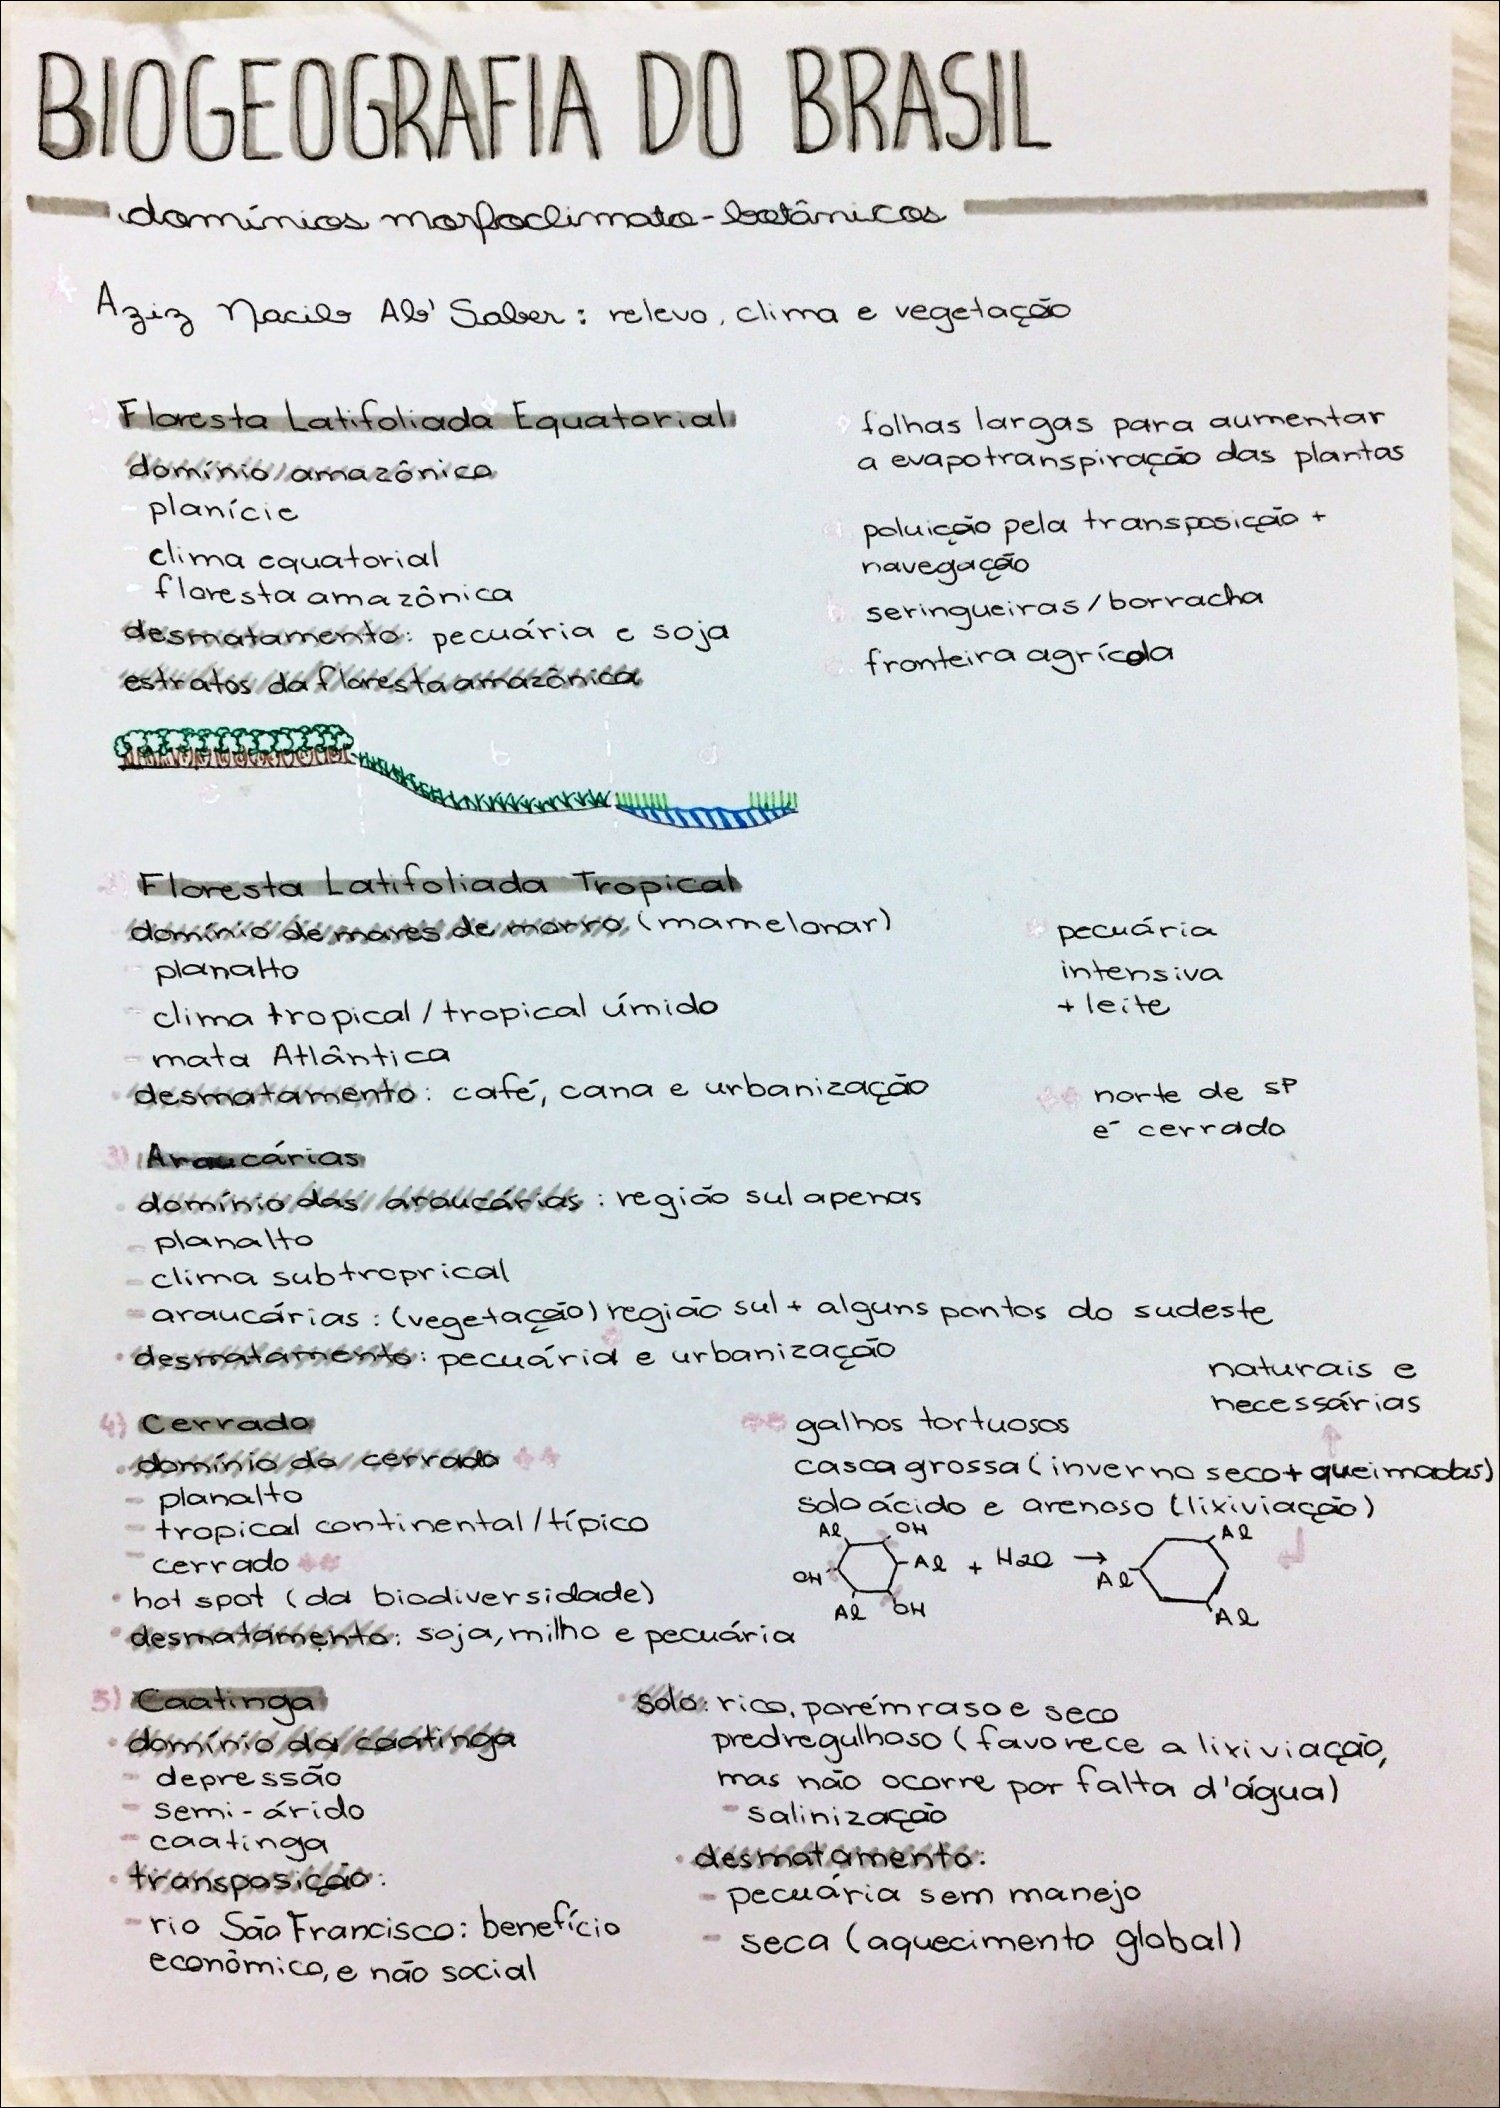 BIOGEOGRAFIA DO BRASIL
domínios morfoclimato-botânicos
* Aziz Nacib Ab' Saber: relevo, clima e vegetação
1) Floresta Latifoliada Equatorial
domínio amazônico
- planície
- clima equatorial
- floresta amazônica
desmatamento: pecuária e soja
estratos da floresta amazônica
folhas largas para aumentar
a evapotranspiração das plantas
a poluição pela transposição +
navegação
b seringueiras/borracha
c fronteira agrícola
c b a
2) Floresta Latifoliada Tropical
domínio de mares de morro (mamelonar)
- planalto
- clima tropical/tropical úmido
- mata Atlântica
• desmatamento: café, cana e urbanização
* pecuária
intensiva
+ leite
** norte de SP
é cerrado
3) Araucárias
• domínio das araucárias: região sul apenas
- planalto
- clima subtroprical
- araucárias: (vegetação) região sul + alguns pontos do sudeste
• desmatamento: pecuária* e urbanização
4) Cerrado
• domínio do cerrado **
- planalto
- tropical continental/típico
- cerrado **
• hot spot (da biodiversidade)
• desmatamento: soja, milho e pecuária
naturais e
necessárias
↑
** galhos tortuosos
casca grossa (inverno seco + queimadas)
solo ácido e arenoso (lixiviação)
Al OH
OH Al + H2O → Al Al
Al OH Al
5) Caatinga
• domínio da caatinga
- depressão
- semi-árido
- caatinga
• transposição:
- rio São Francisco: benefício
econômico, e não social
• solo: rico, porém raso e seco
predregulhoso (favorece a lixiviação,
mas não ocorre por falta d'água)
- salinização
• desmatamento:
- pecuária sem manejo
- seca (aquecimento global)